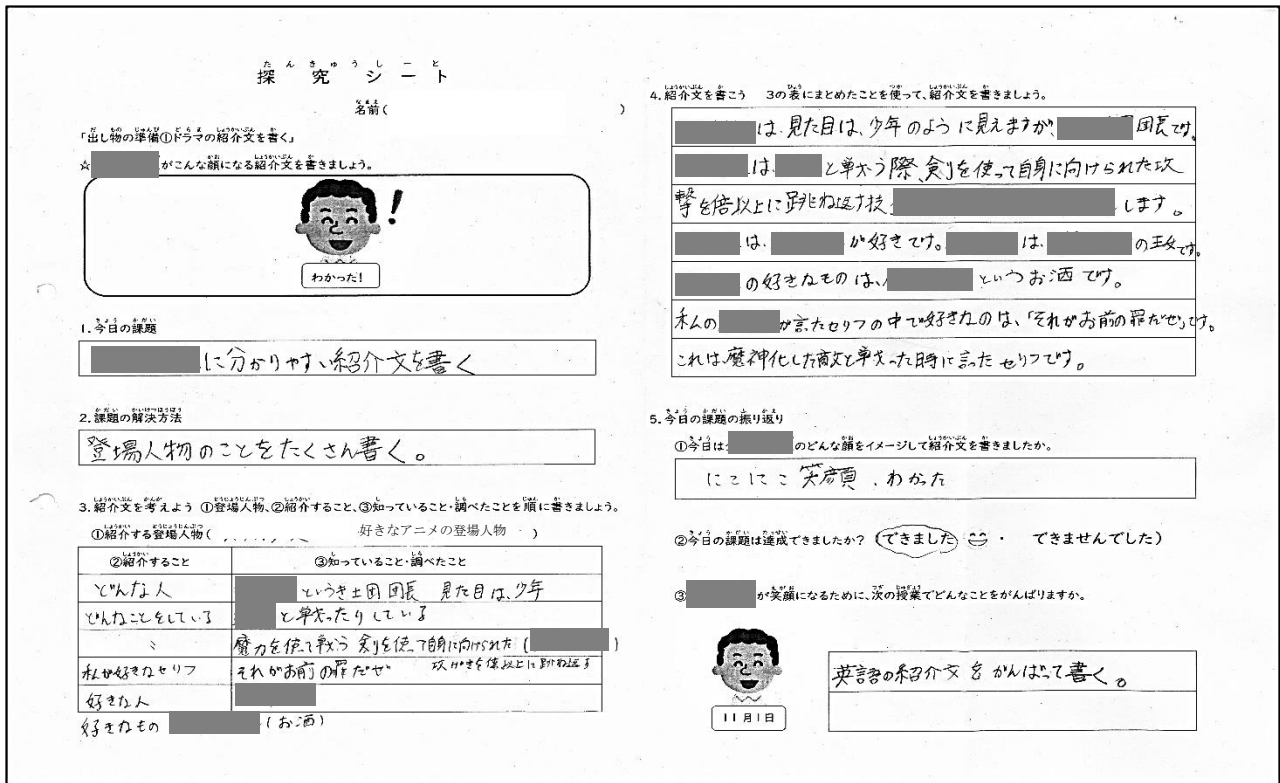 たんきゅうしーと
探究シート
なまえ
名前( )
「出し物の準備①ドラマの紹介文を書く」
☆ がこんな顔になる紹介文を書きましょう。
!
わかった!
1.今日の課題
に分かりやすい紹介文を書く
2.課題の解決方法
登場人物のことをたくさん書く。
3.紹介文を考えよう ①登場人物、②紹介すること、③知っていること・調べたことを順に書きましょう。
①紹介する登場人物( 好きなアニメの登場人物 )
②紹介すること ③知っていること・調べたこと
どんな人 というき士団団長 見た目は、少年
どんなことをしている と戦ったりしている
〃 魔力を使って戦う 剣を使って自身に向けられた( )
攻げきを倍以上に跳ね返す
私が好きなセリフ それがお前の罪だぜ
好きな人
好きなもの (お酒)
4.紹介文を書こう 3の表にまとめたことを使って、紹介文を書きましょう。
は、見た目は、少年のように見えますが、 団長です。
は、 と戦う際、剣を使って自身に向けられた攻
撃を倍以上に跳ね返す技 します。
は、 が好きです。 は、 の王女です。
の好きなものは、 というお酒です。
私の が言たセリフの中で好きなのは、「それがお前の罪だぜ」です。
これは、魔神化した敵と戦った時に言ったセリフです。
5.今日の課題の振り返り
①今日は のどんな顔をイメージして紹介文を書きましたか。
にこにこ 笑顔、わかった
②今日の課題は達成できましたか? (できました ・ できませんでした)
③ が笑顔になるために、次の授業でどんなことをがんばりますか。
11月1日
英語の紹介文をがんばって書く。